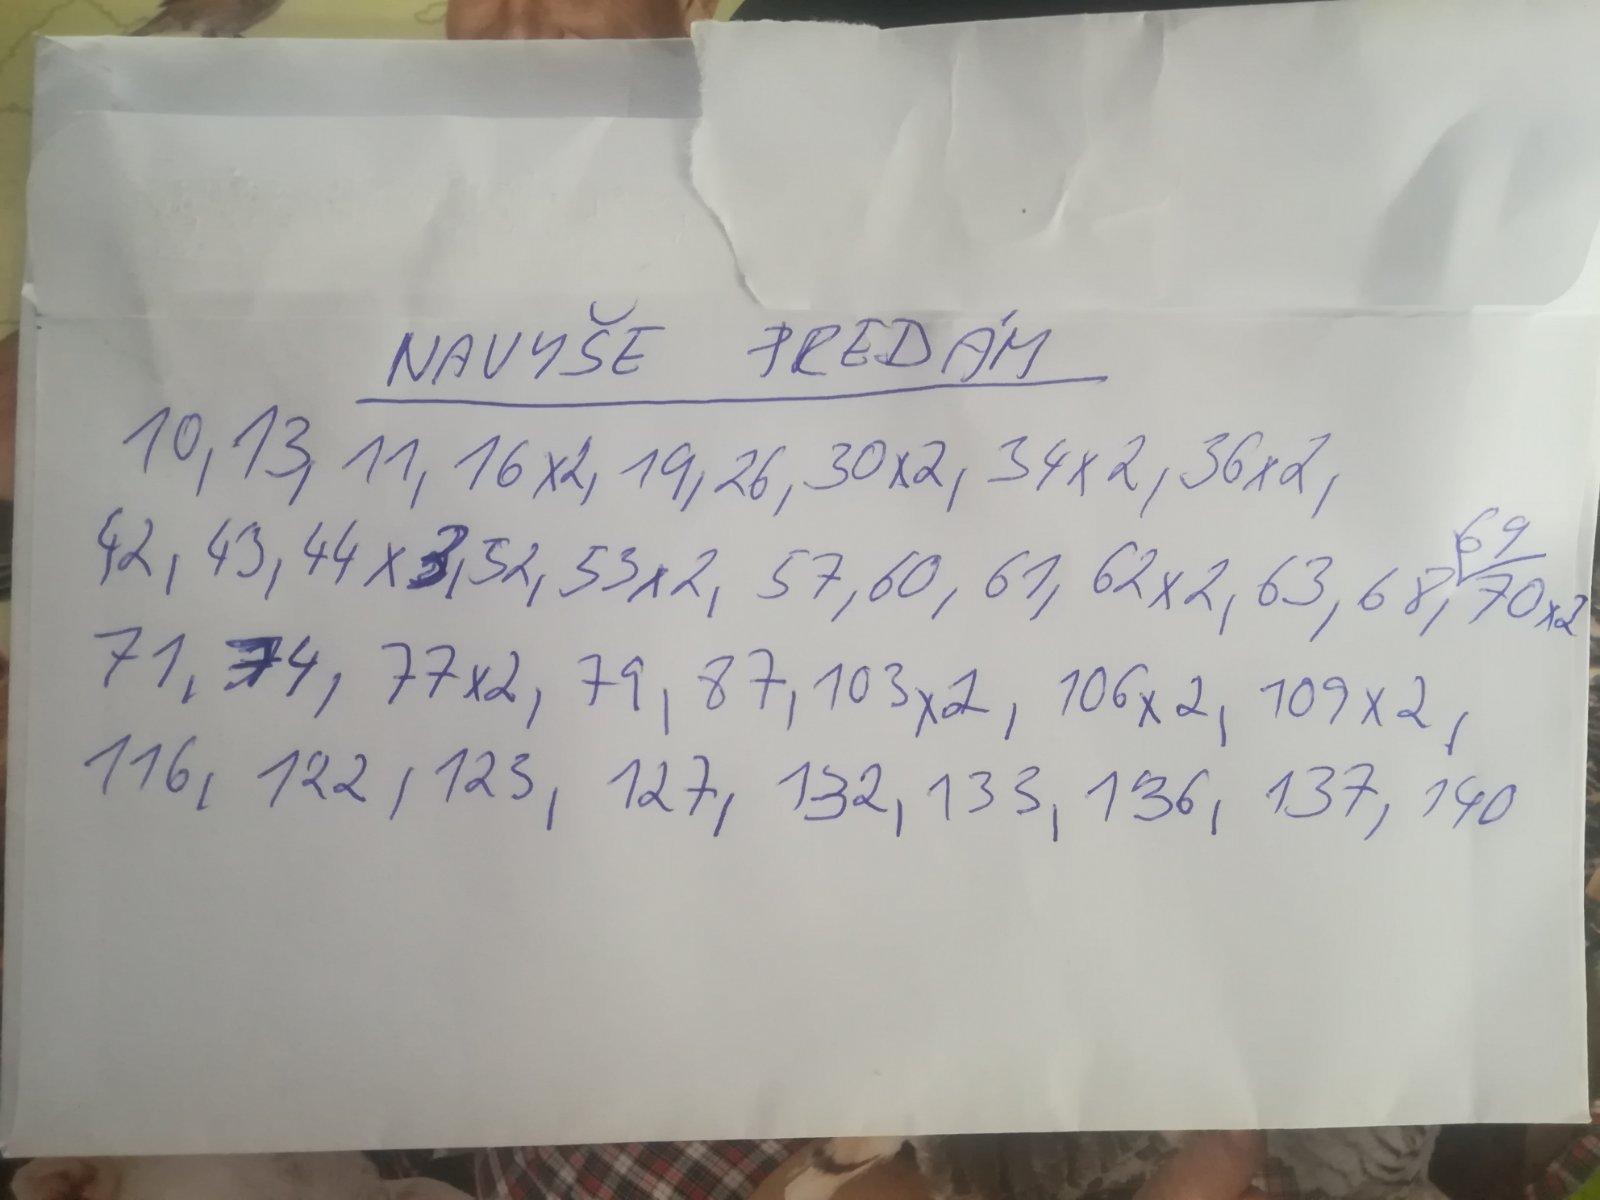 NAVYŠE PREDÁM
10, 13, 11, 16x2, 19, 26, 30x2, 34x2, 36x2,
42, 43, 44x3, 52, 53x2, 57, 60, 61, 62x2, 63, 68, 69 70x2
71, 74, 77x2, 79, 87, 103x2, 106x2, 109x2,
116, 122, 123, 127, 132, 133, 136, 137, 140